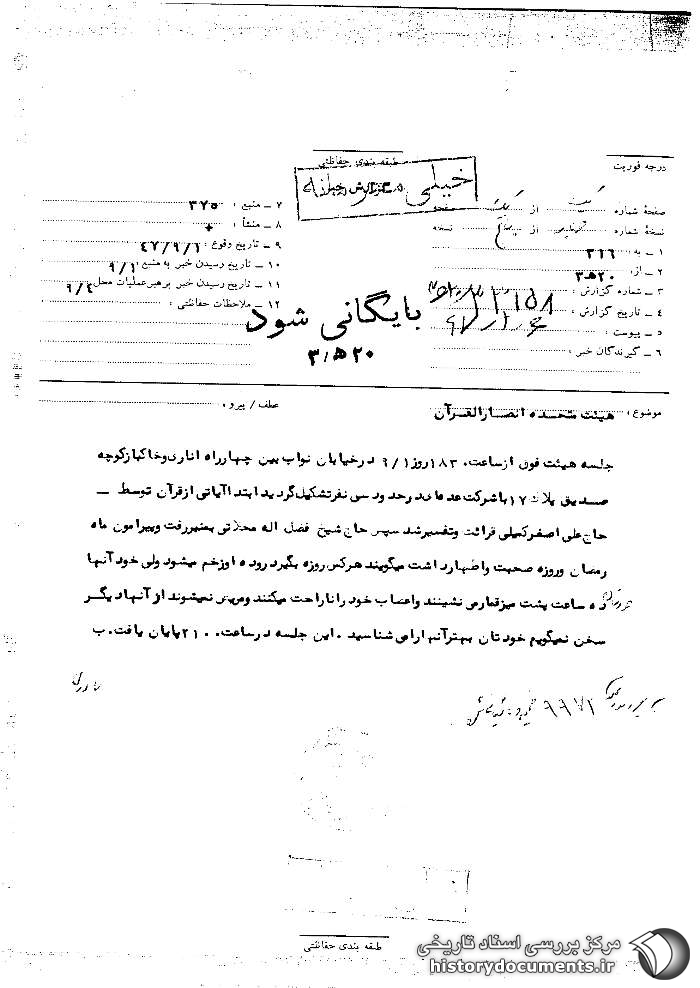 درجه فوریت
طبقه بندی حفاظتی
خیلی محرمانه
گزارش خبر
صفحهٔ شماره یک از یک صفحه
نسخهٔ شماره از نسخه
۱ ـ به: ۳۱۶
۲ ـ از: ۲۰ ه‍ ۳
۳ ـ شماره گزارش:
۴ ـ تاریخ گزارش:
۵ ـ پیوست:
۶ ـ گیرندگان خبر:
۷ ـ منبع: ۳۷۵
۸ ـ منشأ: +
۹ ـ تاریخ وقوع: ۴۷/۹/۱
۱۰ ـ تاریخ رسیدن خبر به منبع: ۹/۱
۱۱ ـ تاریخ رسیدن خبر برهبر عملیات محل: ۹/۲
۱۲ ـ ملاحظات حفاظتی:
بایگانی شود
۲۰ ه‍ ۳
موضوع: هیئت متحده انصارالقرآن
عطف / پیرو:
جلسه هیئت فوق ازساعت ۱۸۳۰ روز ۹/۱ درخیابان نواب بین چهارراه اناری وخاکباز کوچه
صدیق پلاک ۱۷ باشرکت عده ای در حدود سی نفر تشکیل گردید ابتدا آیاتی از قرآن توسط ـ
حاج علی اصغر کمیلی قرائت وتفسیر شد سپس حاج شیخ فضل اله محلاتی بمنبر رفت وپیرامون ماه
رمضان وروزه صحبت واظهارداشت میگویند هرکس روزه بگیرد روده اوزخم میشود ولی خود آنها
ده ساعت پشت میز قمار می نشینند واعصاب خود را ناراحت میکنند ومریض نمیشوند از آنها دیگر
سخن نمیگویم خودتان بهتر آنها را می شناسید . این جلسه درساعت ۲۱۰۰ پایان یافت. ب
۹۹۷۱
طبقه بندی حفاظتی
مرکز بررسی اسناد تاریخی
historydocuments.ir